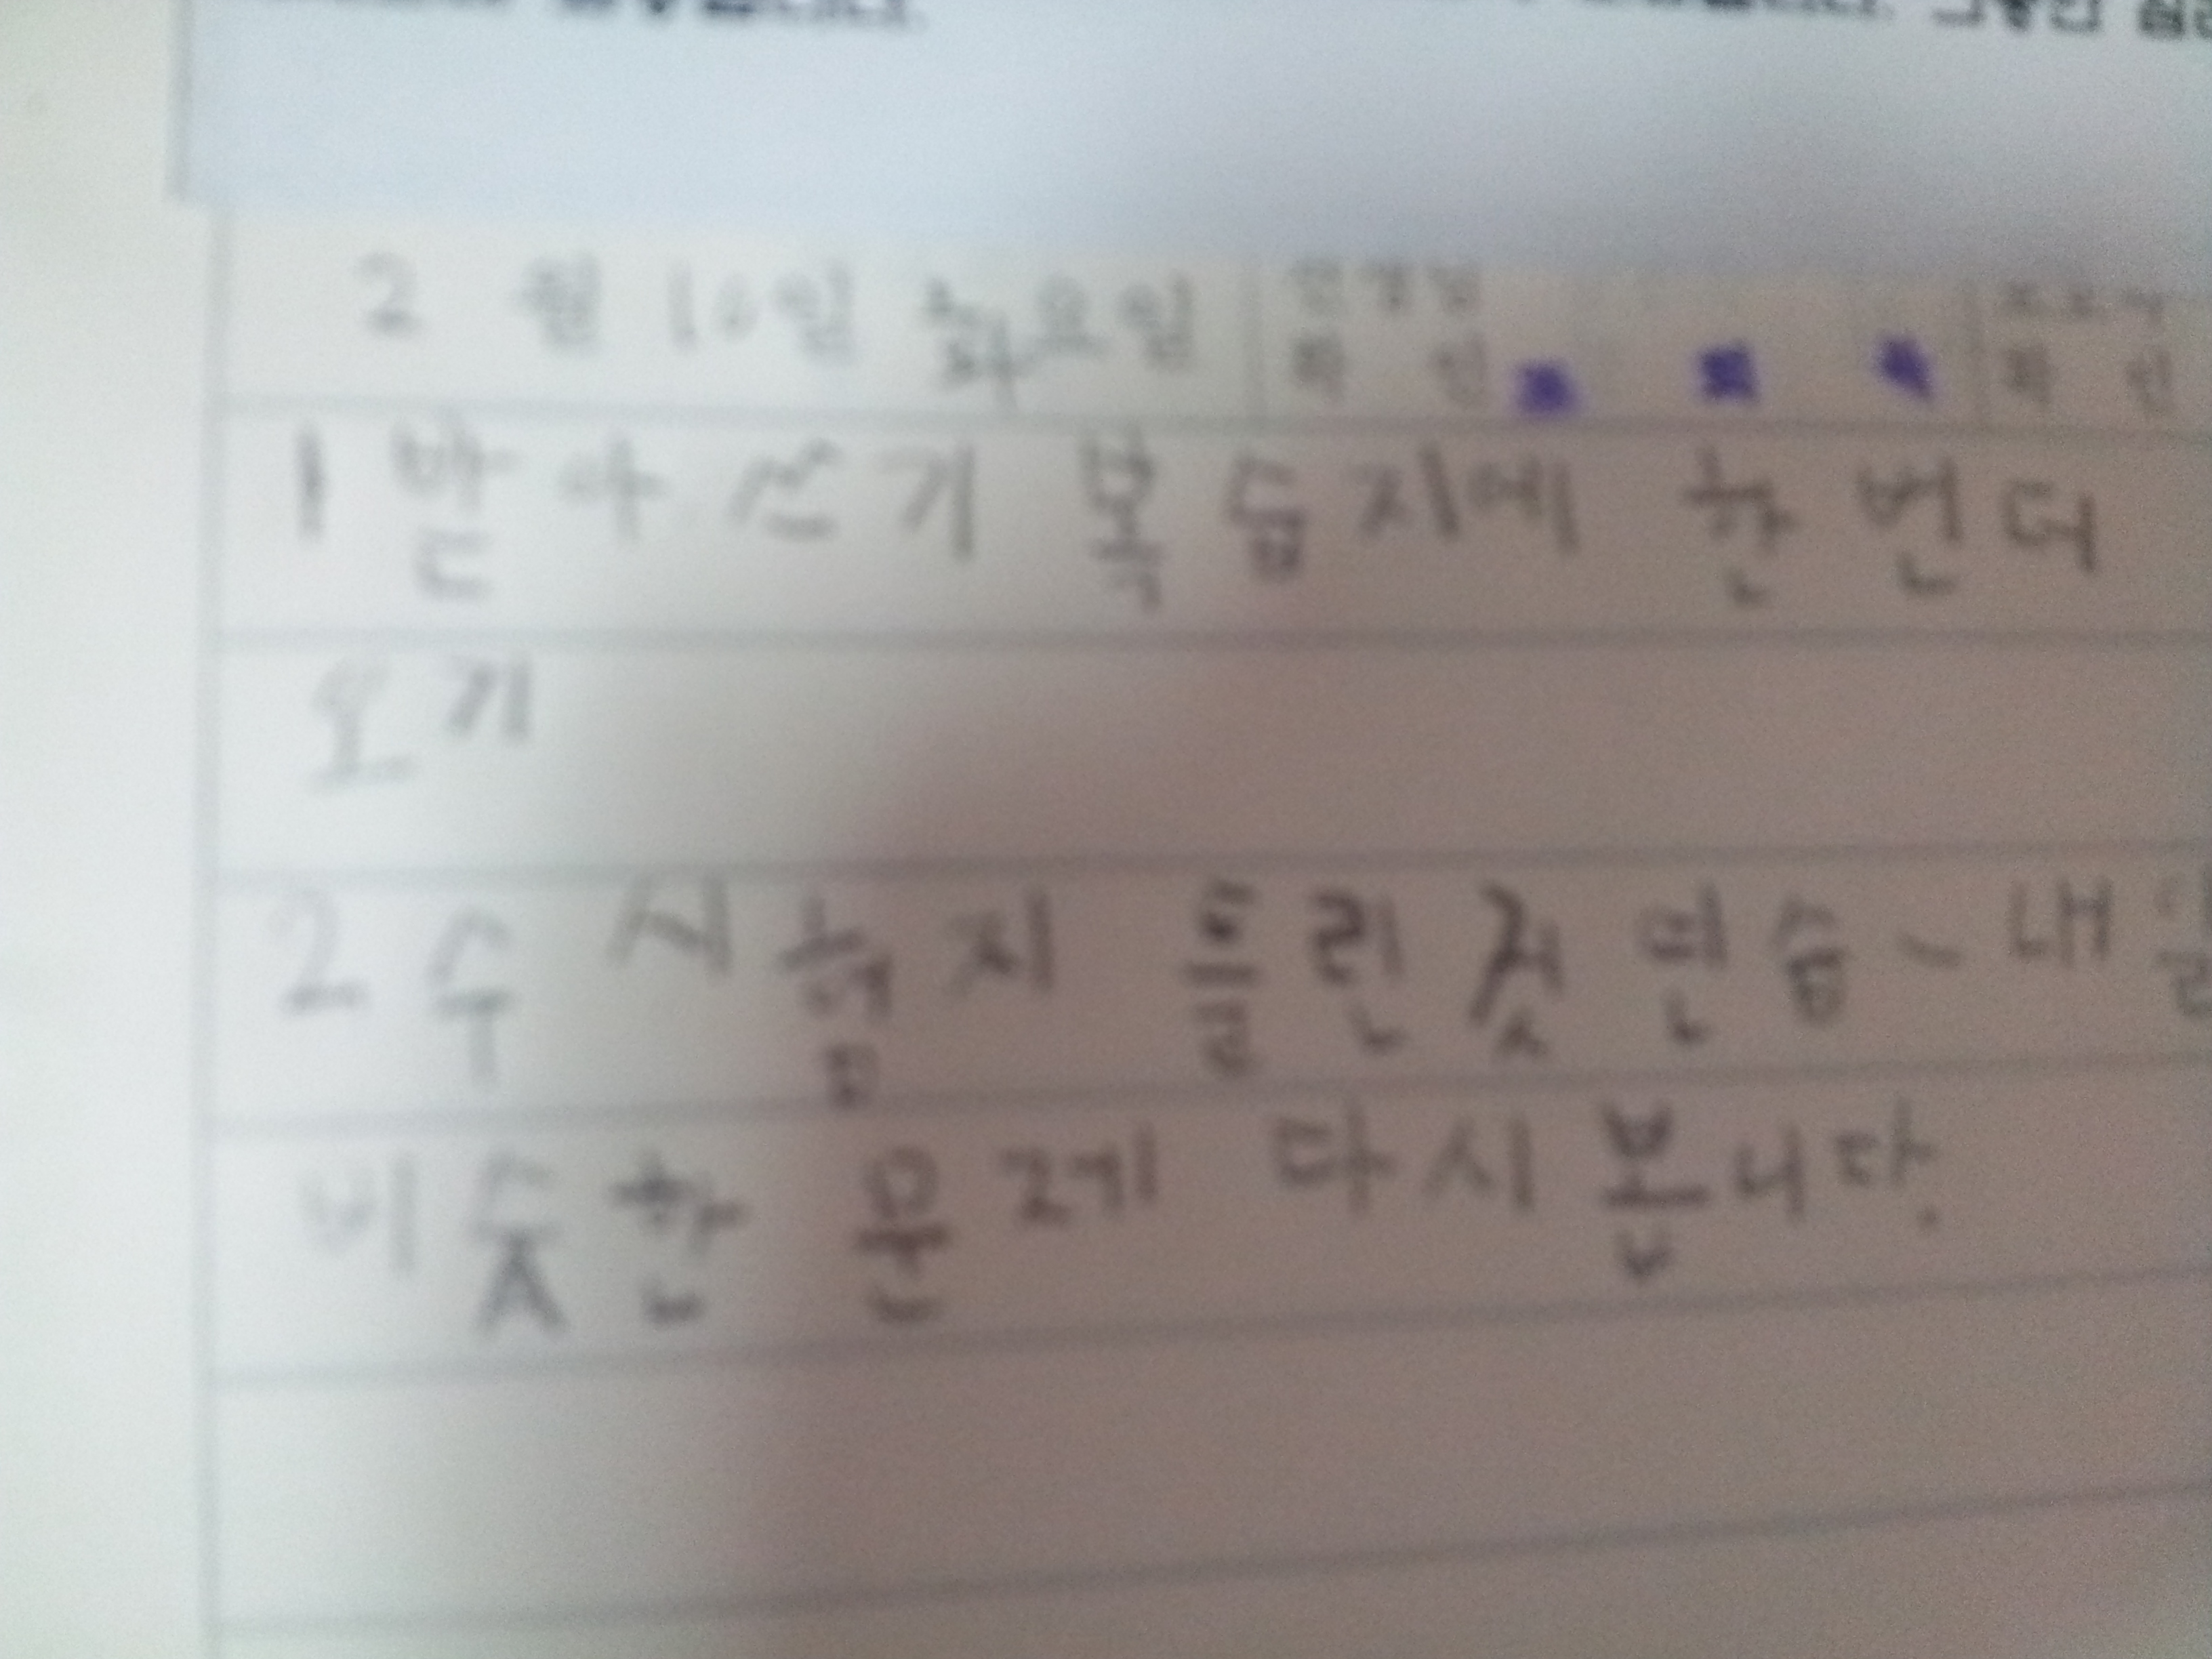 2 월 10일 화요일 선생님
확 인 확 인
1 받아쓰기 복습지에 한 번 더
오기
2 수 시험지 틀린것 연습 - 내일
비슷한 문제 다시 봅니다.